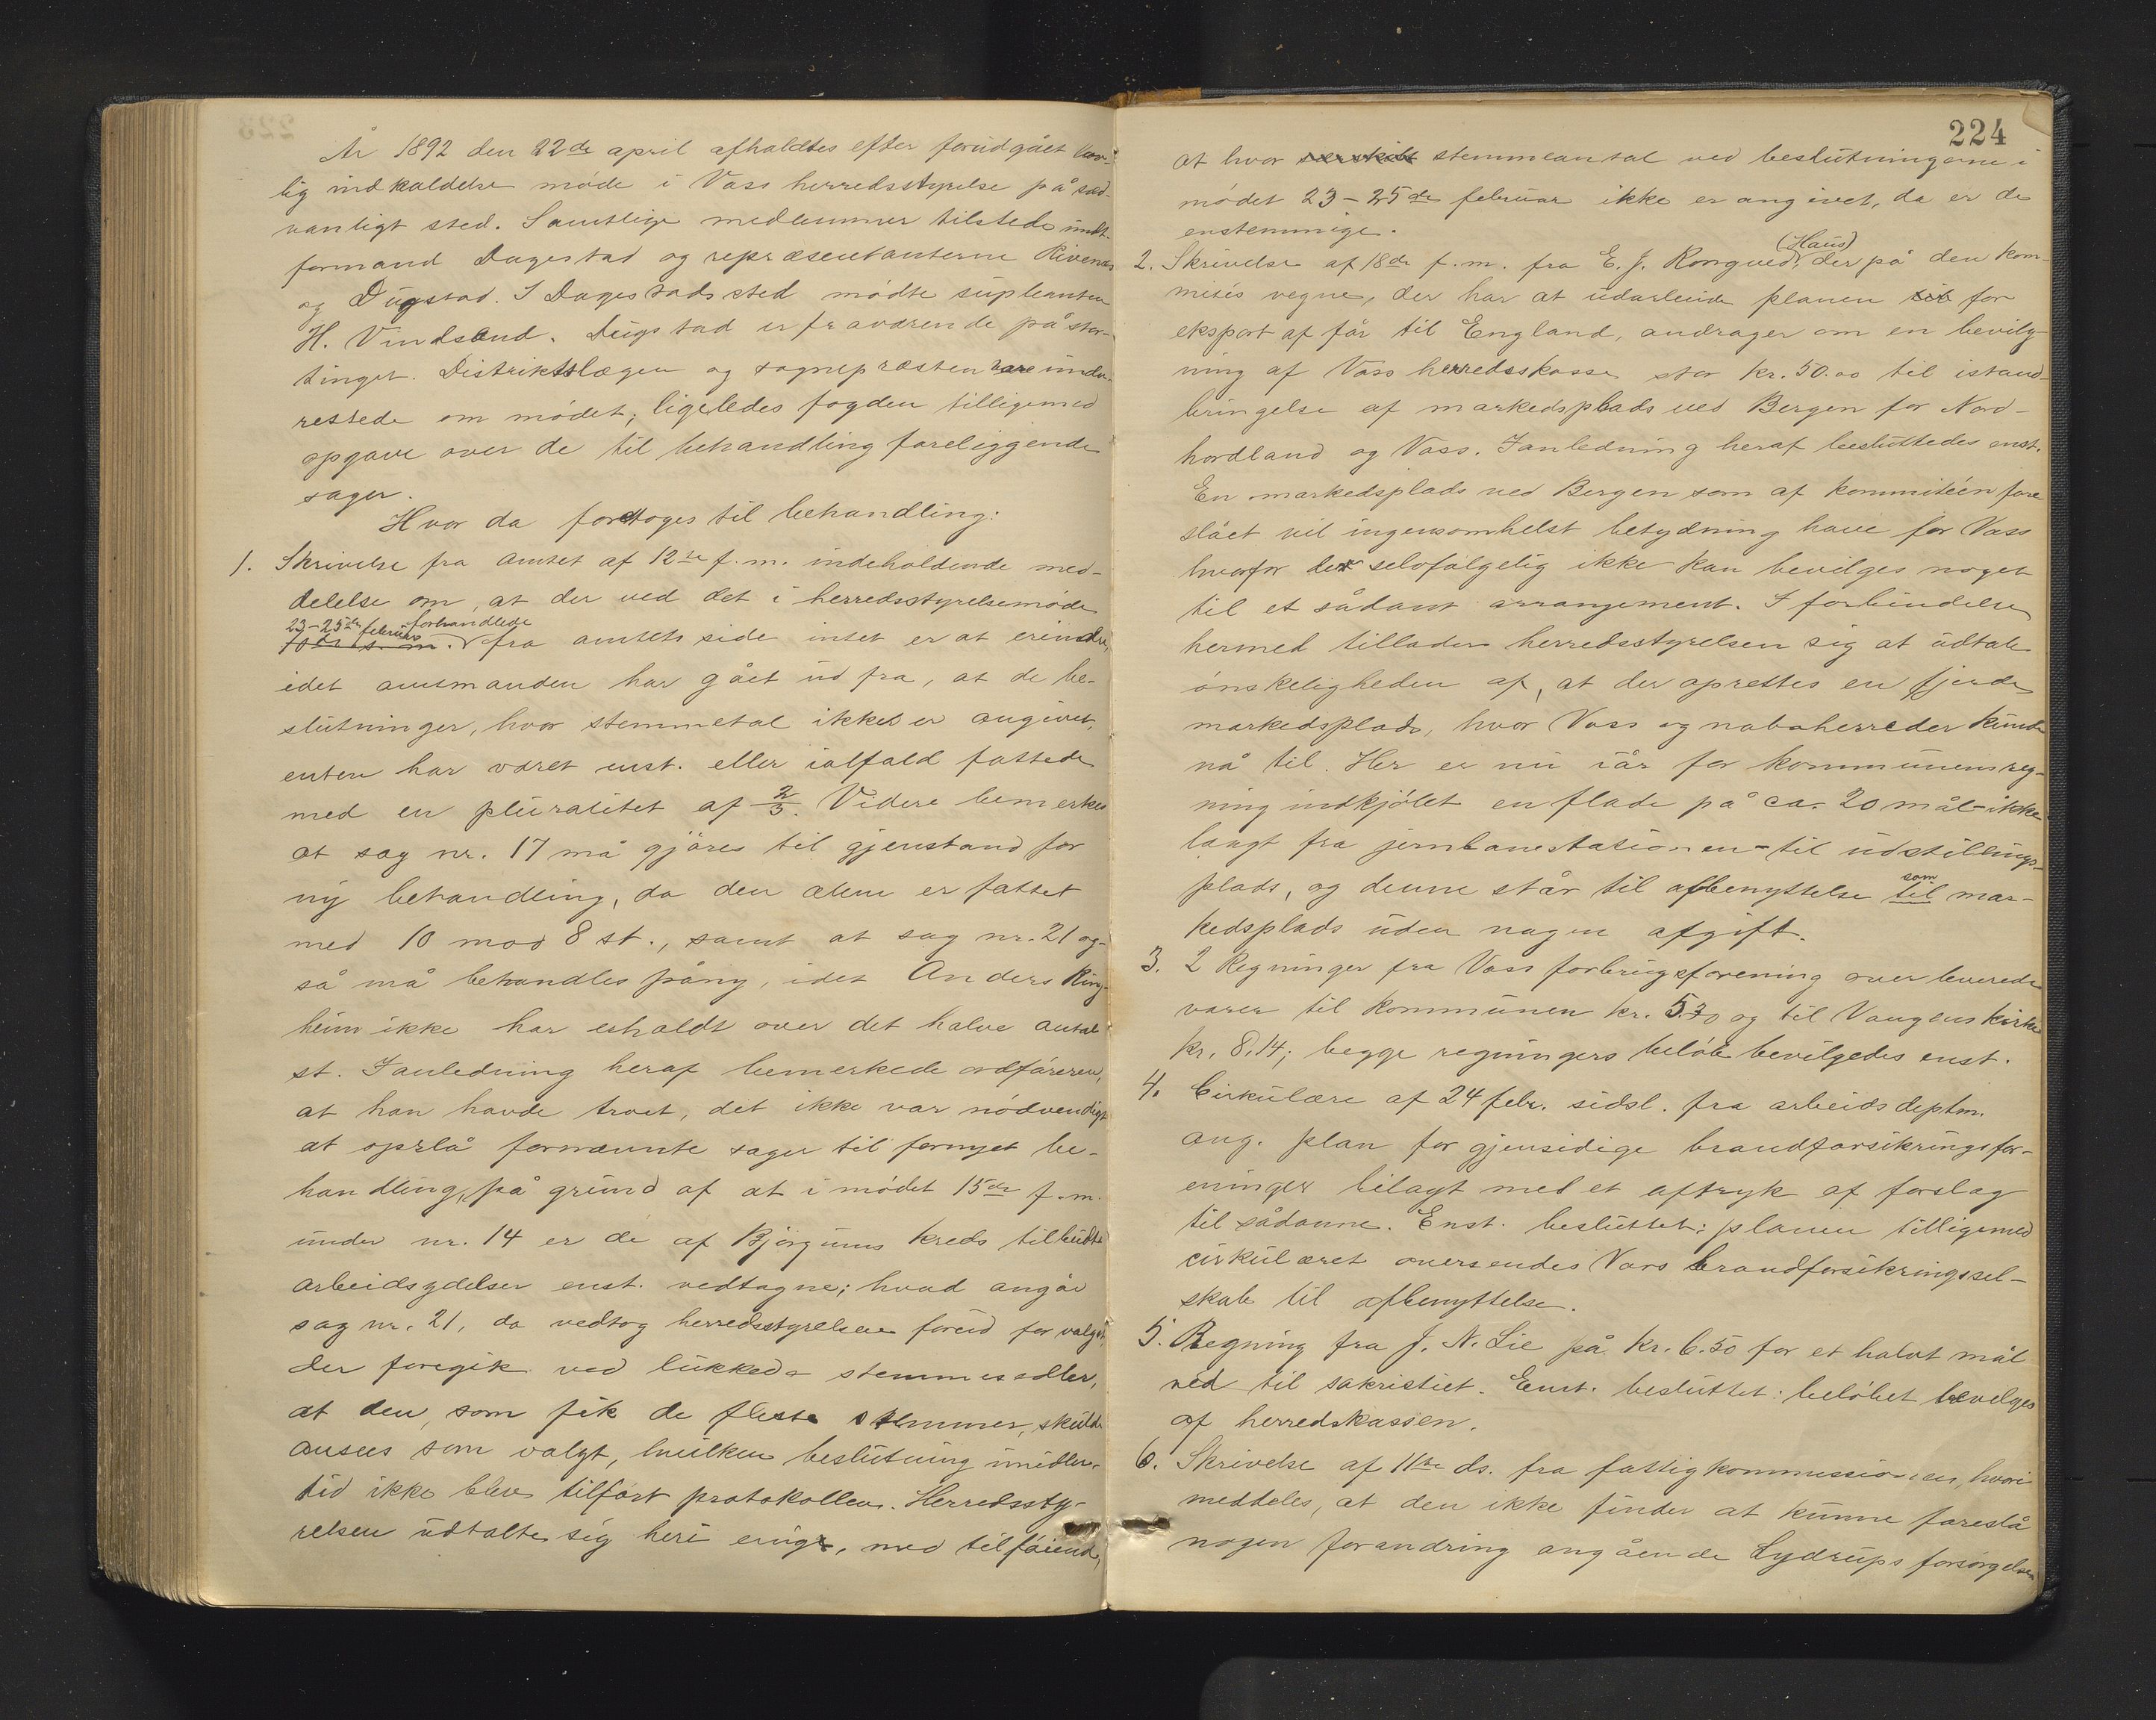 År 1892 den 22de april afholdtes efter forudgået lov-
lig indkaldelse møde i Voss herredsstyrelse på sæd-
vanligt sted. Samtlige medlemmer tilstede undt.
formand Dagestad og repræsentanterne Rivenes
og Dugstad. I Dagestads sted mødte supleanten
H. Vindsand. Dugstad er fraværende på stor-
tinget. Distriktslægen og sognepræsten vare under-
rettede om mødet; ligeledes fogden tilligemed
opgave over de til behandling foreliggende
sager.
Hvor da foretoges til behandling:
1. Skrivelse fra amtet af 12te f.m. indeholdende med-
delelse om, at der ved det i herredsstyrelsemøde
23-25de februar forhandlede
10de s.m. fra amtets side intet er at erindre,
idet amtmanden har gået ud fra, at de be-
slutninger, hvor stemmetal ikke er angivet,
enten har været enst. eller ialfald fattede
med en pluralitet af 2/3. Videre bemerkes
at sag nr. 17 må gjøres til gjenstand for
ny behandling, da den alene er fattet
med 10 mod 8 st., samt at sag nr. 21 og-
så må behandles påny, idet Anders Ring-
heim ikke har erholdt over det halve antal
st. Ianledning heraf bemerkede ordføreren,
at han havde troet, det ikke var nødvendigt
at opslå fornævnte sager til fornyet be-
handling, på grund af at i mødet 15de f.m.
under nr. 14 er de af Bjørgums kreds tilbudte
arbeidsydelser enst. vedtagne; hvad angår
sag nr. 21, da vedtog herredsstyrelsen forud for valget,
der foregik ved lukkede stemmesedler,
at den, som fik de fleste stemmer, skulde
ansees som valgt, hvilken beslutning imidler-
tid ikke blev tilført protokollen. Herredssty-
relsen udtalte sig heri enig, med tilføiende,
224
at hvor særskilt stemmeantal ved beslutningerne i
mødet 23-25de februar ikke er angivet, da er de
enstemmige.
2. Skrivelse af 18de f.m. fra E. J. Rongved (Haus), der på den kom-
mités vegne, der har at udarbeide planen til for
eksport af får til England, andrager om en bevilg-
ning af Voss herredskasse stor kr. 50.00 til istand-
bringelse af markedsplads ved Bergen for Nord-
hordland og Voss. Ianledning heraf besluttedes enst.
En markedsplads ved Bergen som af kommitéen fore
slået vil ingensomhelst betydning have for Voss
hvorfor der selvfølgelig ikke kan bevilges noget
til et sådant arrangement. I forbindelse
hermed tillader herredsstyrelsen sig at udtale
ønskeligheden af, at der oprettes en fjerde
markedsplads, hvor Voss og naboherreder kunde
nå til. Her er nu iår for kommunens reg-
ning indkjøbt en flade på ca. 20 mål - ikke
langt fra jernbanestationen - til udstillings-
plads, og denne står til afbenyttelse som til mar-
kedsplads uden nogen afgift.
3. 2 Regninger fra Voss forbrugsforening over leverede
varer til kommunen kr. 5.70 og til Vangens kirke
kr. 8.14; begge regningers beløb bevilgedes enst.
4. Cirkulære af 24 febr. sidsl. fra arbeidsdeptm.
ang. plan for gjensidige brandforsikringsfor-
eninger bilagt med et aftryk af forslag
til sådanne. Enst. besluttet: planen tilligemed
cirkulæret oversendes Voss brandforsikringssel-
skab til afbenyttelse.
5. Regning fra J. N. Lie på kr. 6.50 for et halvt mål
ved til sakristiet. Enst. besluttet: beløbet bevilges
af herredskassen.
6. Skrivelse af 11te ds. fra fattigkommissionen, hvori
meddeles, at den ikke finder at kunne foreslå
nogen forandring angående Lydrups forsørgelse